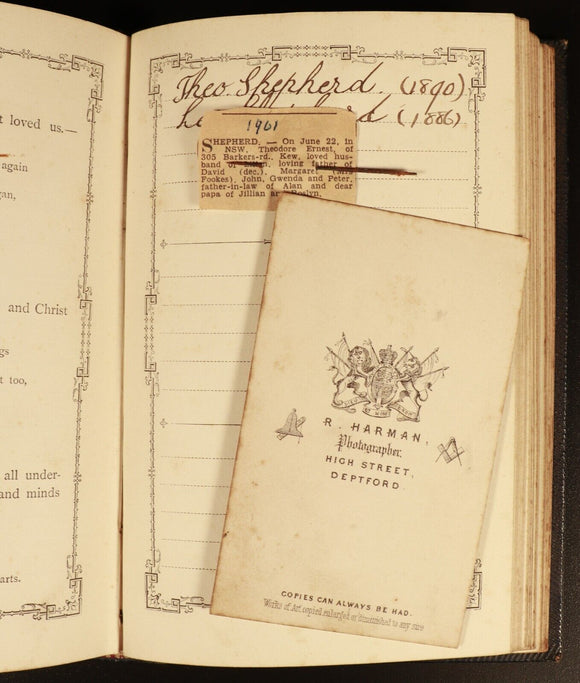 t loved us.—
again
gan,
and Christ
gs
t too,
all under-
and minds
arts.
Theo. Shepherd. (1890)
(1886)
1961
SHEPHERD. — On June 22, in
NSW, Theodore Ernest, of
305 Barkers-rd., Kew, loved hus-
band of loving father of
David (dec.), Margaret (Mrs
Fookes), John, Gwenda and Peter,
father-in-law of Alan and dear
papa of Jillian and Roslyn.
R. HARMAN,
Photographer.
HIGH STREET,
DEPTFORD
COPIES CAN ALWAYS BE HAD.
Works of Art copied enlarged or diminished to any size